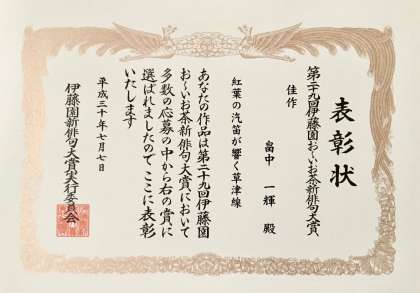 表彰状
第二十九回伊藤園お〜いお茶新俳句大賞
佳作
畠中 一輝 殿
紅葉の汽笛が響く草津線
あなたの作品は第二十九回伊藤園
お〜いお茶新俳句大賞において
多数の応募の中から右の賞に
選ばれましたのでここに表彰
いたします
平成三十年七月七日
伊藤園新俳句大賞実行委員会